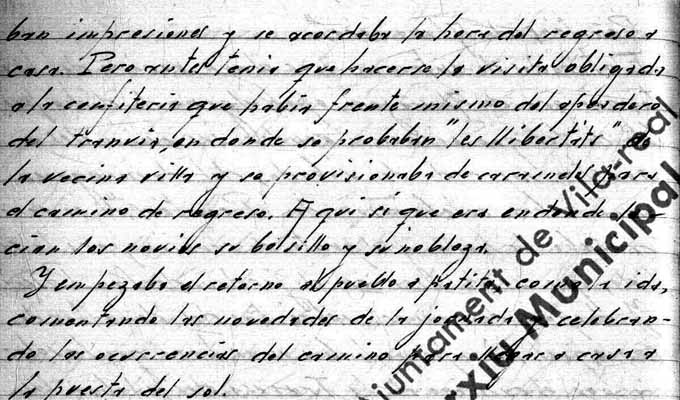 ban impresiones y se acordaba la hora del regreso a
casa. Pero antes tenia que hacerse la visita obligada
a la confiteria que habia frente mismo del apeadero
del tranvia, en donde se probaban "les llibertats" de
la vecina villa y se provisionaba de caramelos para
el camino de regreso. Aqui si que era en donde lu-
cian los novios su bolsillo y su nobleza.
Y empezaba el retorno al pueblo a patita, como la ida,
comentando las novedades de la jornada y celebran-
do las ocurrencias del camino para llegar a casa a
la puesta del sol.
Ajuntament de Vila-real
Arxiu Municipal